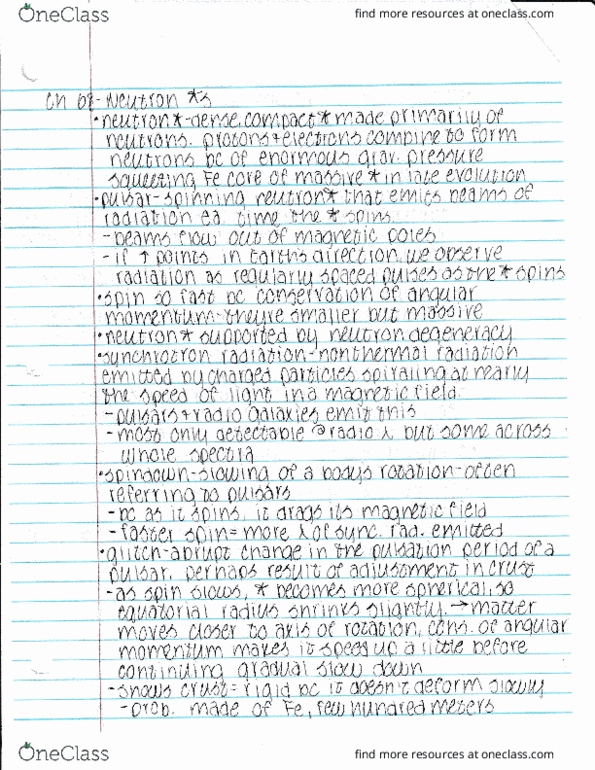 OneClass
find more resources at oneclass.com
Ch 6: - Neutron *s
• neutron*-dense, compact * made primarily of
neutrons. protons + electrons combine to form
neutrons bc of enormous grav. pressure
squeezing Fe core of massive * in late evolution
• pulsar-spinning neutron* that emits beams of
radiation ea. time the * spins
- beams flow out of magnetic poles
- if ↑ points in Earth's direction, we observe
radiation as regularly spaced pulses as the * spins
• spin so fast bc conservation of angular
momentum-they're smaller but massive
• neutron* supported by neutron degeneracy
• synchrotron radiation-nonthermal radiation
emitted by charged particles spiraling at nearly
the speed of light in a magnetic field.
- pulsars + radio galaxies emit this
- most only detectable @ radio λ but some across
whole spectra
• spindown-slowing of a body's rotation-often
referring to pulsars
- bc as it spins, it drags its magnetic field
- faster spin = more λ of sync. rad. emitted
• glitch-abrupt change in the pulsation period of a
pulsar, perhaps result of adjustment in crust
- as spin slows, * becomes more spherical, so
equatorial radius shrinks slightly. → matter
moves closer to axis of rotation, cons. of angular
momentum makes it speed up a little before
continuing gradual slow down
- shows crust = rigid bc it doesn't deform slowly
- prob. made of Fe, few hundred meters
OneClass
find more resources at oneclass.com